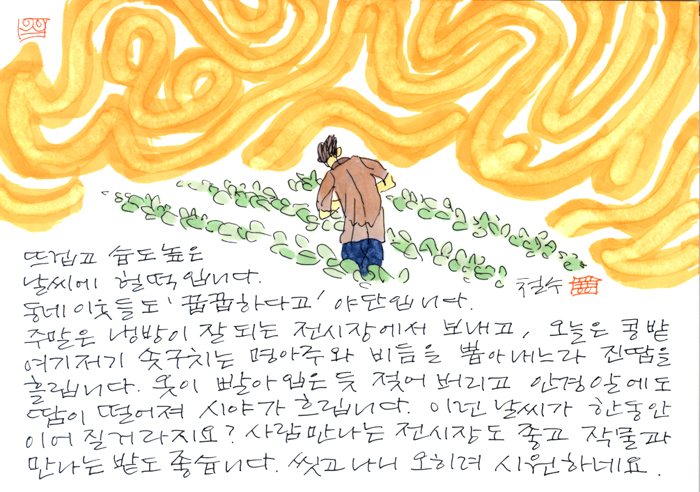 뜨겁고 습도높은
날씨에 헐떡입니다.
동네이웃들도 '꿉꿉하다고' 야단입니다.
주말은 냉방이 잘 되는 전시장에서 보내고, 오늘은 콩밭
여기저기 솟구치는 명아주와 비듬을 뽑아내느라 진땀을
흘립니다. 옷이 빨아 입은 듯 젖어 버리고 안경알에도
땀이 떨어져 시야가 흐립니다. 이런 날씨가 한동안
이어 질거라지요? 사람만나는 전시장도 좋고 작물과
만나는 밭도 좋습니다. 씻고 나니 오히려 시원하네요.
철수